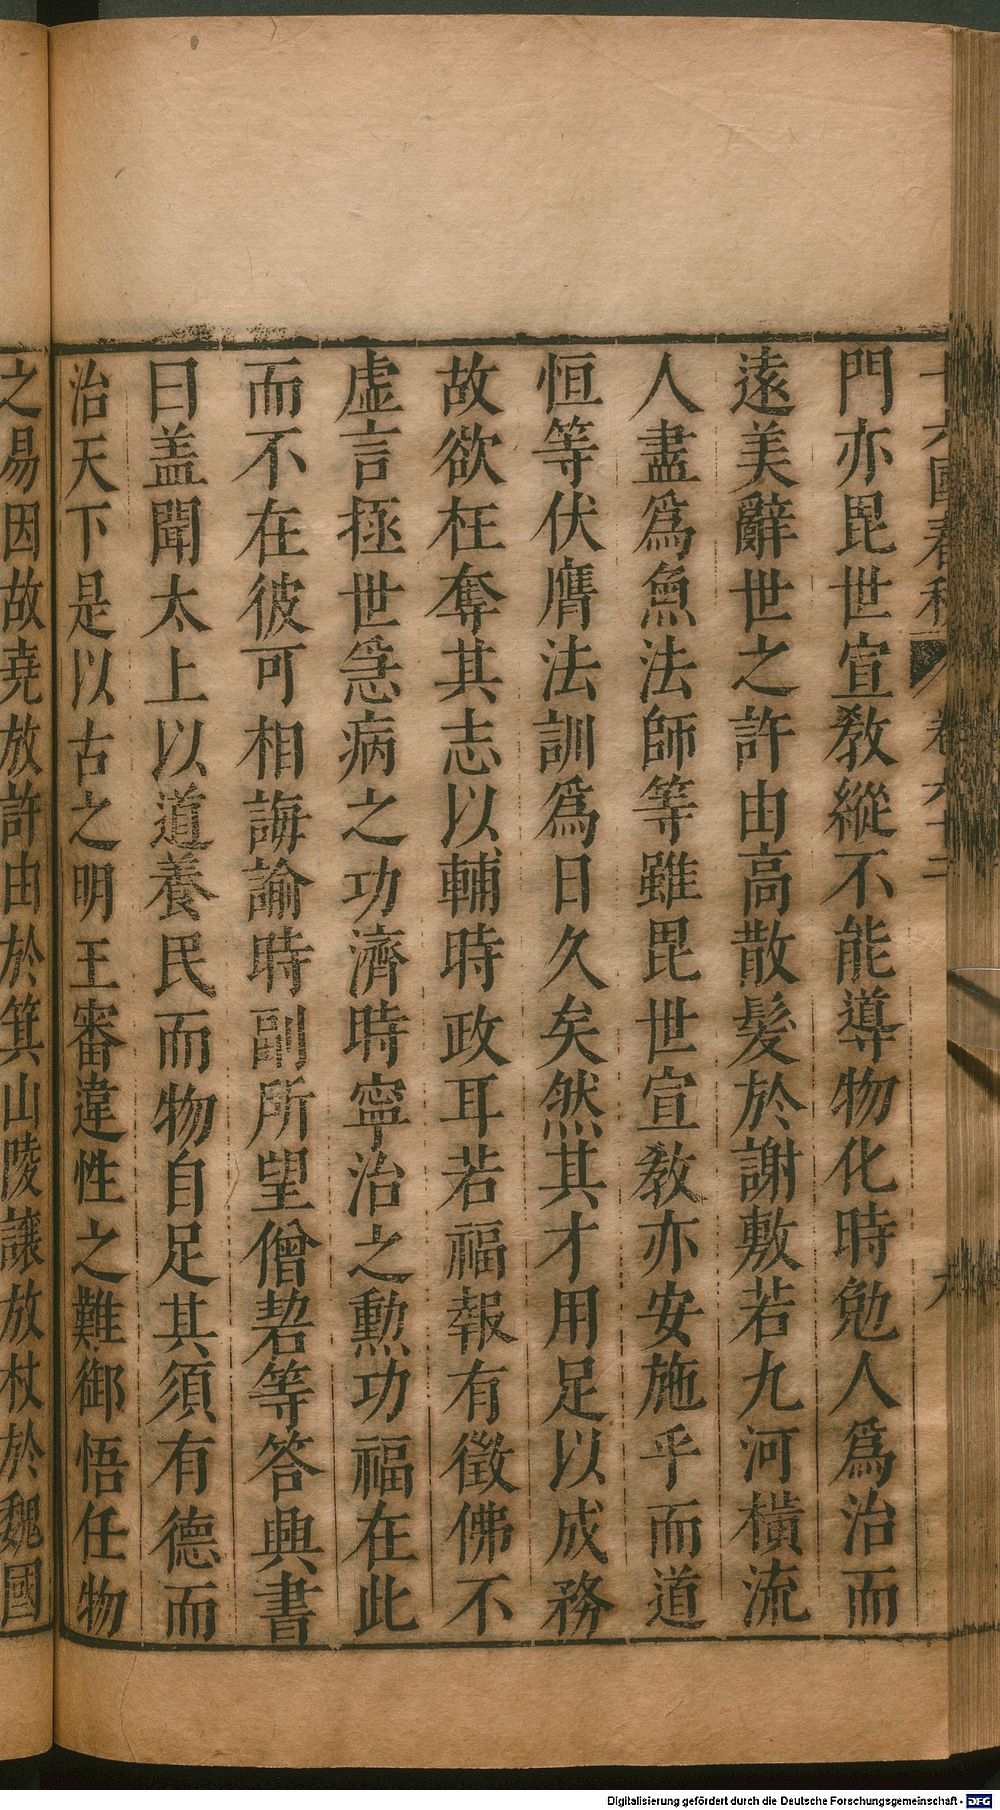 十六國春秋 卷六十二 九
門亦毘世宣敎縱不能導物化時勉人爲治而
遠美辭世之許由高散髮於謝敷若九河橫流
人盡爲魚法師等雖毘世宣敎亦安施乎而道
恒等伏膺法訓爲日久矣然其才用足以成務
故欲枉奪其志以輔時政耳若福報有徵佛不
虛言拯世急病之功濟時寧治之勲功福在此
而不在彼可相誨諭時副所望僧䂮等答興書
曰盖聞太上以道養民而物自足其須有德而
治天下是以古之明王審違性之難御悟任物
之易因故堯放許由於箕山陵讓放杖於魏國
Digitalisierung gefördert durch die Deutsche Forschungsgemeinschaft - DFG